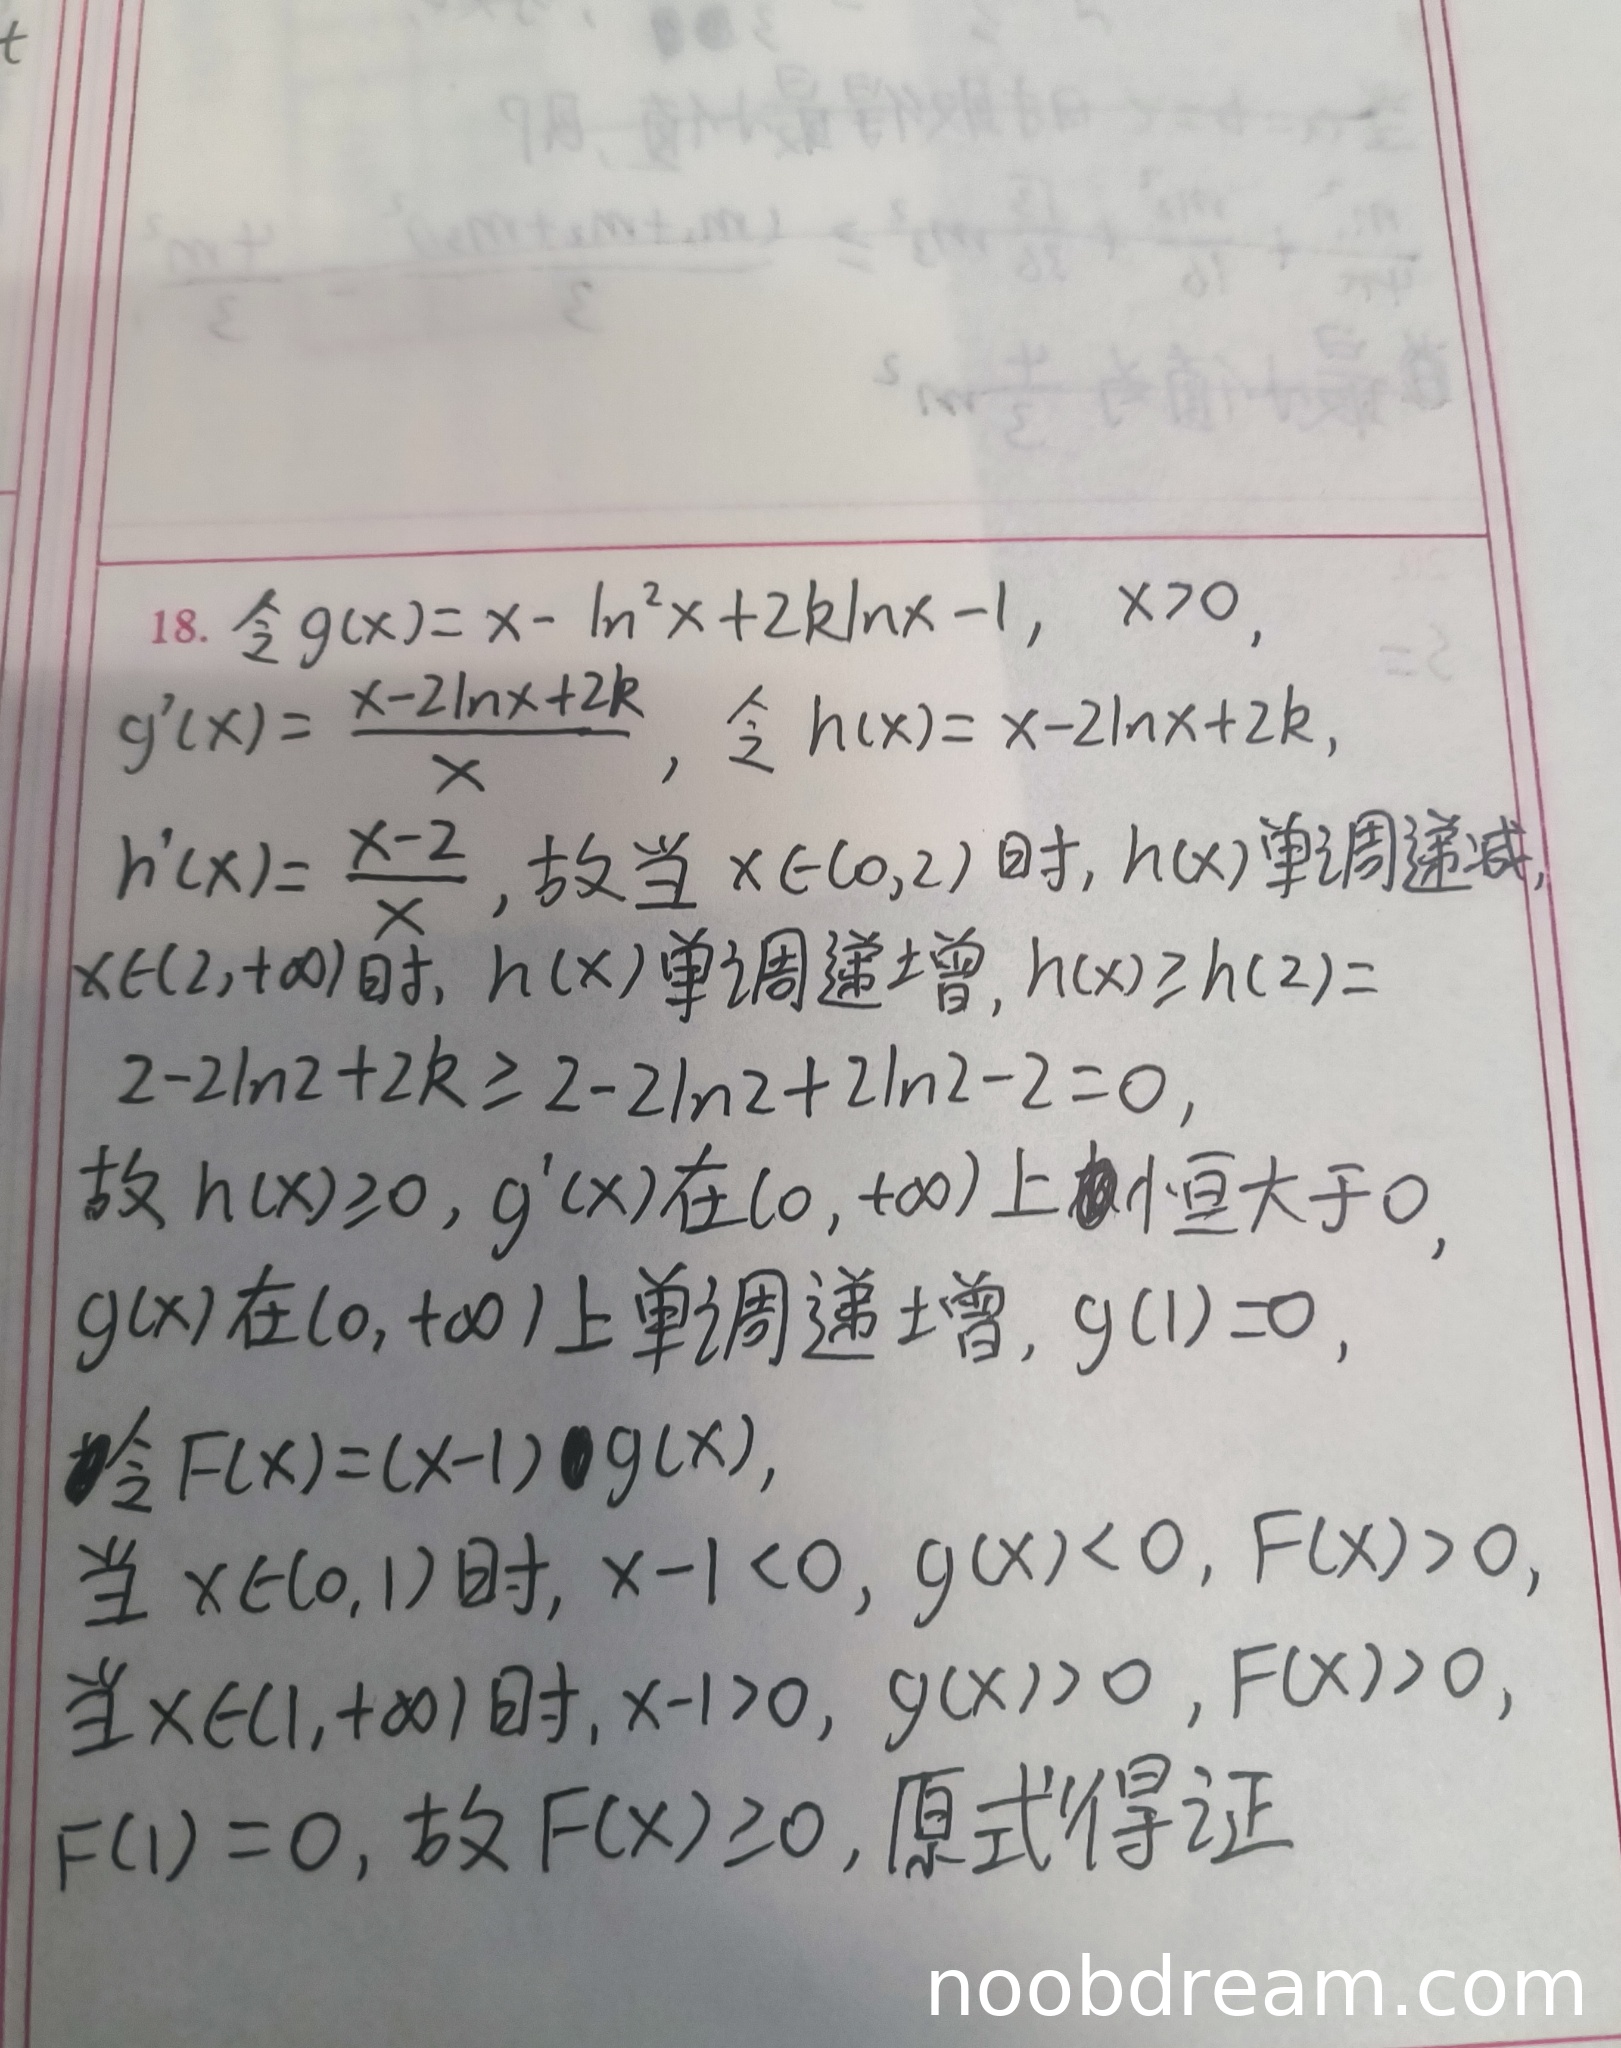 t
18. 令g(x)=x-ln²x+2klnx-1, x>0,
g'(x)=(x-2lnx+2k)/x, 令h(x)=x-2lnx+2k,
h'(x)=(x-2)/x, 故当x∈(0,2)时, h(x)单调递减,
x∈(2,+∞)时, h(x)单调递增, h(x)≥h(2)=
2-2ln2+2k≥2-2ln2+2ln2-2=0,
故h(x)≥0, g'(x)在(0,+∞)上恒大于0,
g(x)在(0,+∞)上单调递增, g(1)=0,
令F(x)=(x-1)g(x),
当x∈(0,1)时, x-1<0, g(x)<0, F(x)>0,
当x∈(1,+∞)时, x-1>0, g(x)>0, F(x)>0,
F(1)=0, 故F(x)≥0, 原式得证
noobdream.com